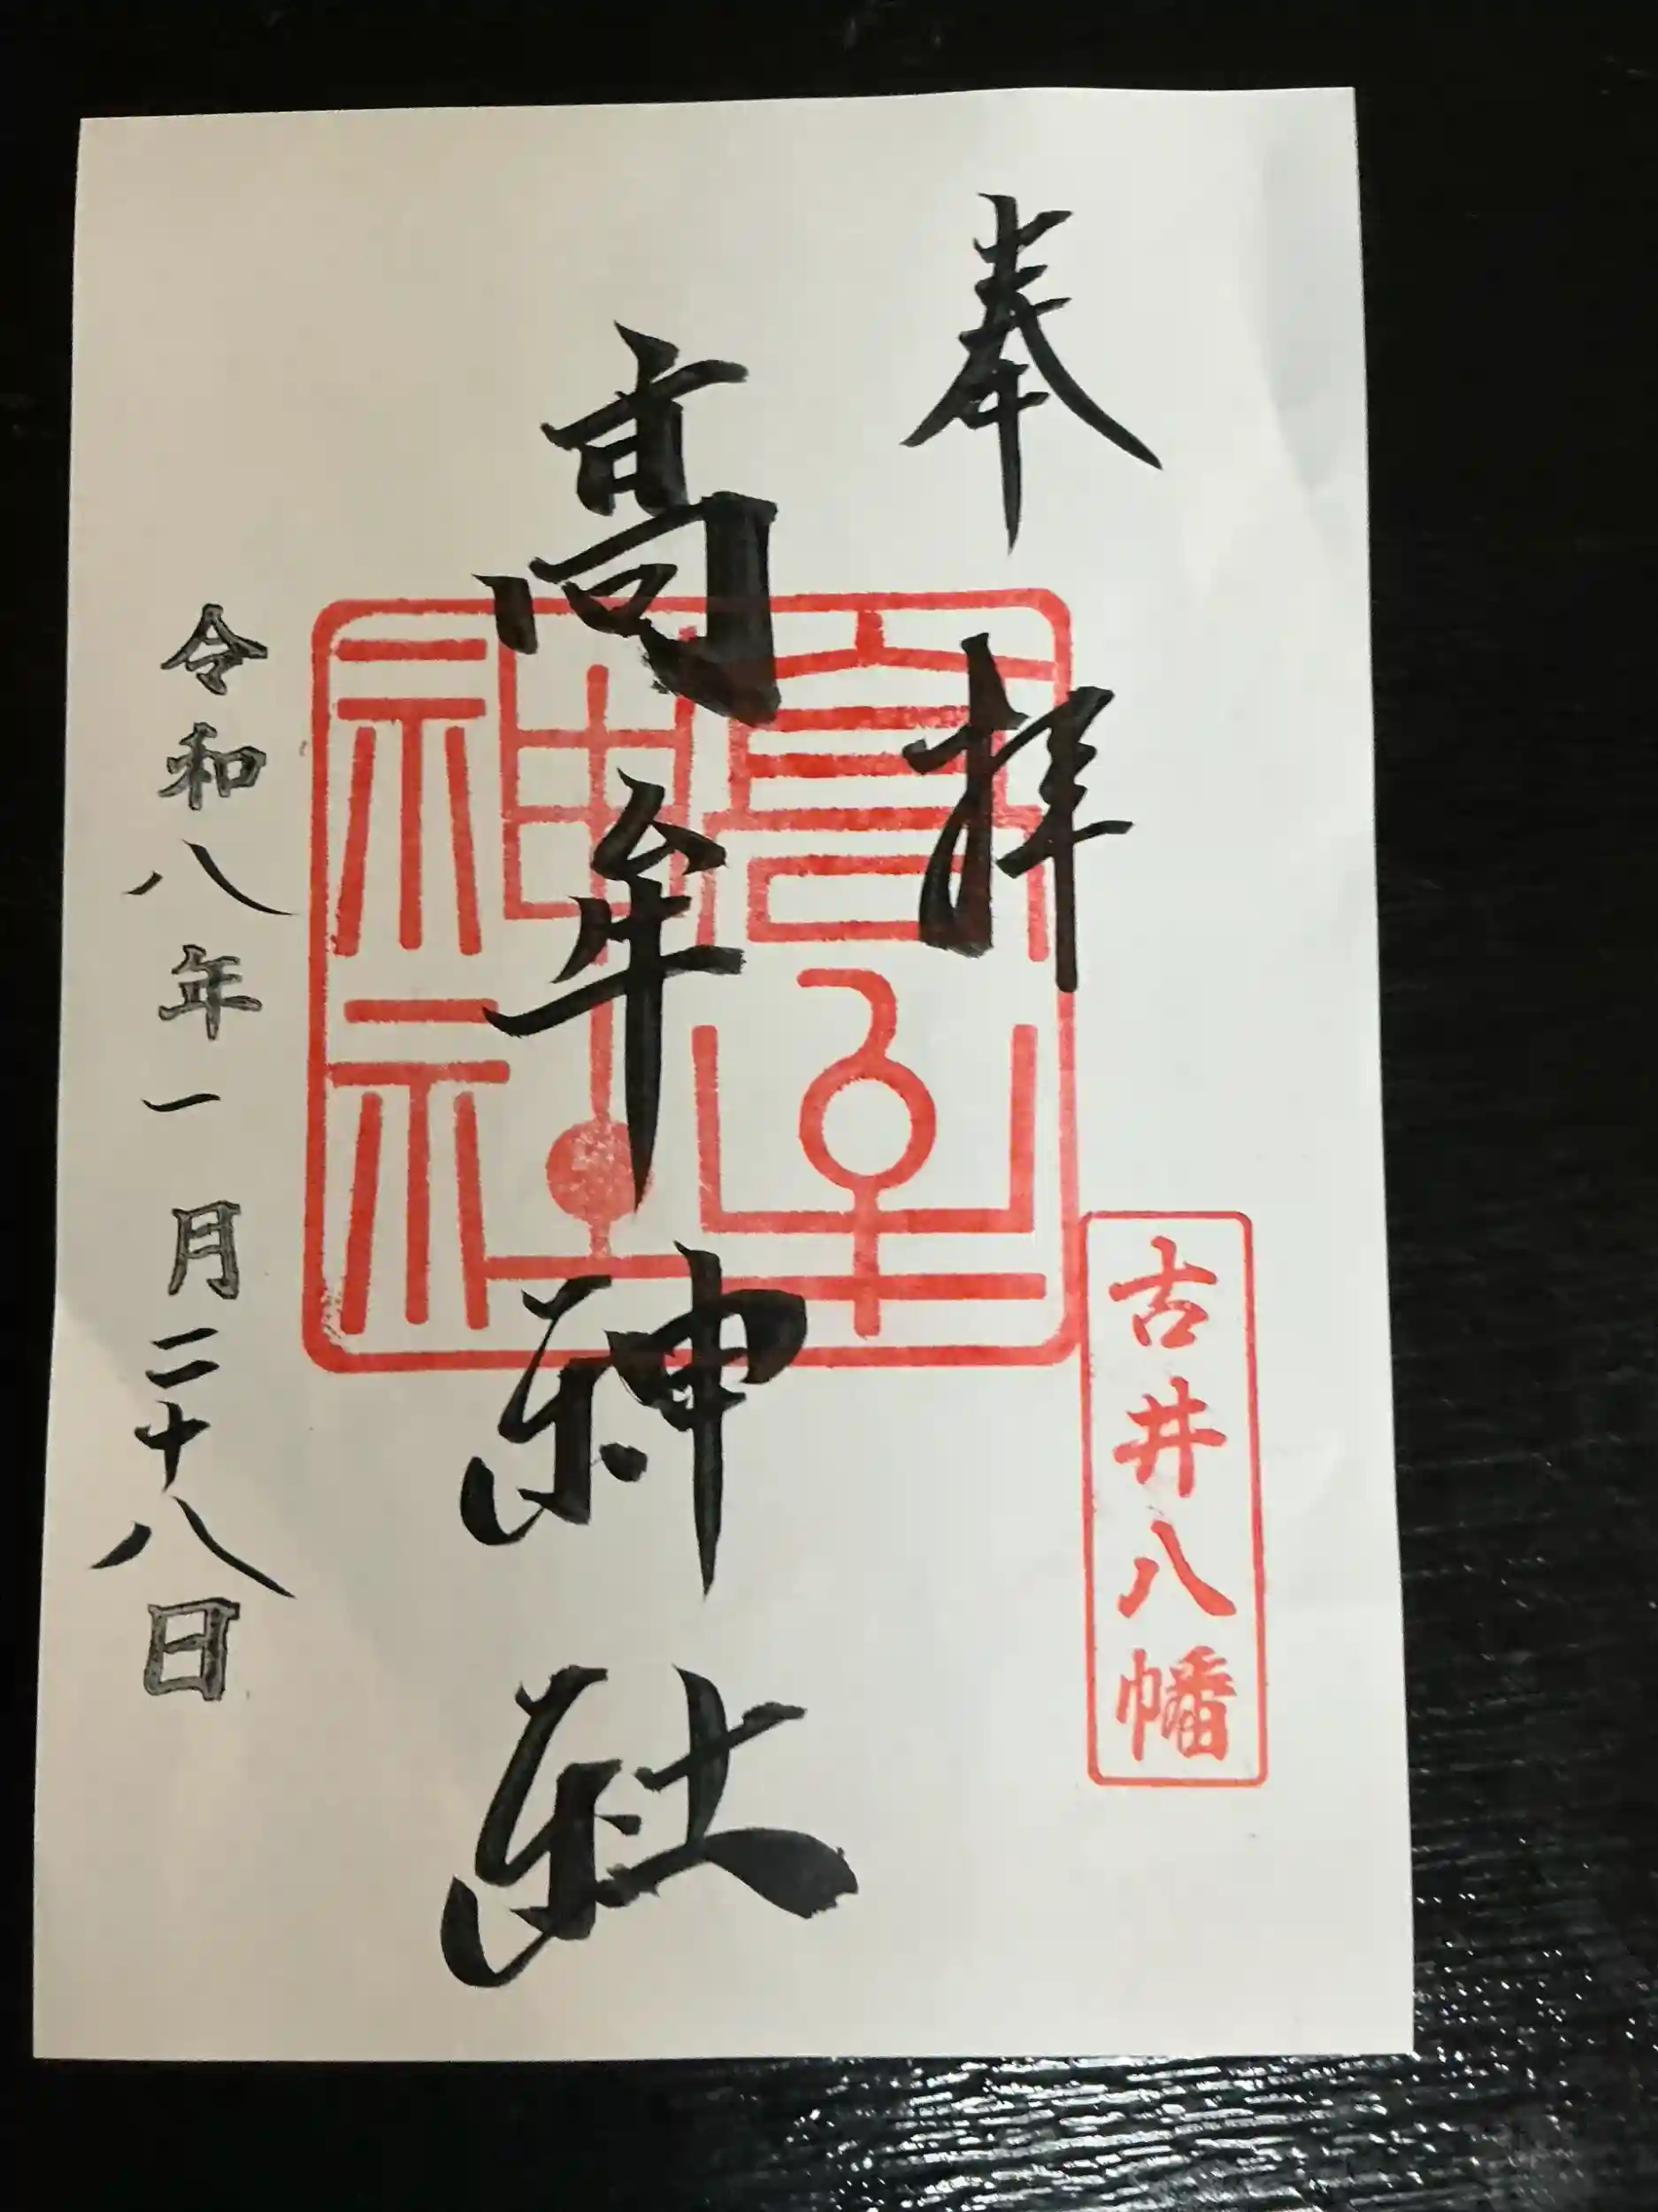 奉拝
古井八幡
高牟神社
高牟神社
令和八年一月二十八日